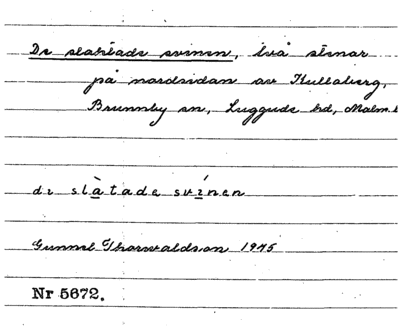 De slaktade svinen, två stenar
på nordsidan av Kullaberg,
Brunnby sn, Luggude hd, Malm.
de slàtade svínen
Gunnel Thorwaldson 1975
Nr 5672.